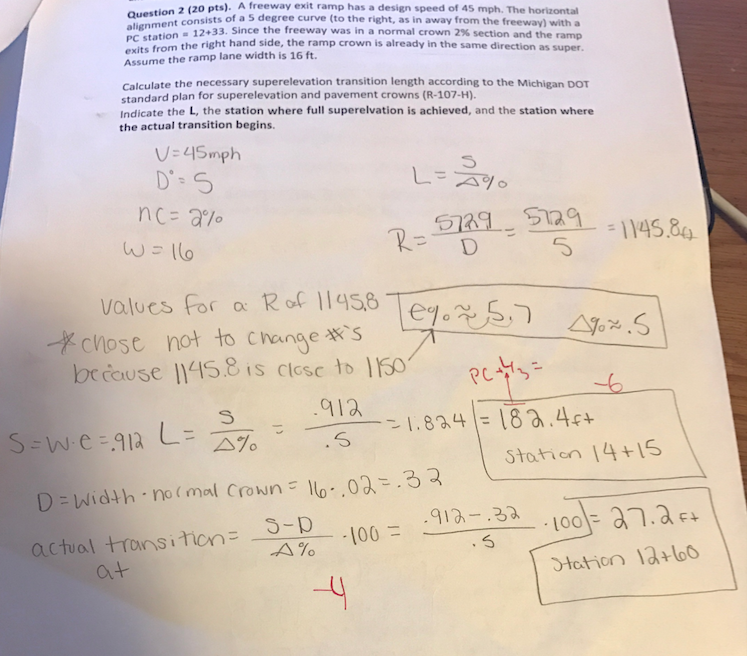 Question 2 (20 pts). A freeway exit ramp has a design speed of 45 mph. The horizontal
alignment consists of a 5 degree curve (to the right, as in away from the freeway) with a
PC station = 12+33. Since the freeway was in a normal crown 2% section and the ramp
exits from the right hand side, the ramp crown is already in the same direction as super.
Assume the ramp lane width is 16 ft.
Calculate the necessary superelevation transition length according to the Michigan DOT
standard plan for superelevation and pavement crowns (R-107-H).
Indicate the L, the station where full superelvation is achieved, and the station where
the actual transition begins.
V=45mph
D°= 5
nc= 2%
W=16
L= S/Δ%
R= 5729/D = 5729/5 = 1145.8
values for a R of 1145.8
e% ≈ 5.7 Δ% ≈ .5
* chose not to change #'s
because 1145.8 is close to 1150
PC+ 1/3 =
-6
S=W·e=.912 L= S/Δ% = .912/.5 = 1.824 = 182.4ft
Station 14+15
D=width·normal crown= 16·.02=.32
actual transition= S-D/Δ% ·100 = .912-.32/.5 ·100 = 27.2 Ft
at
Station 12+60
-4